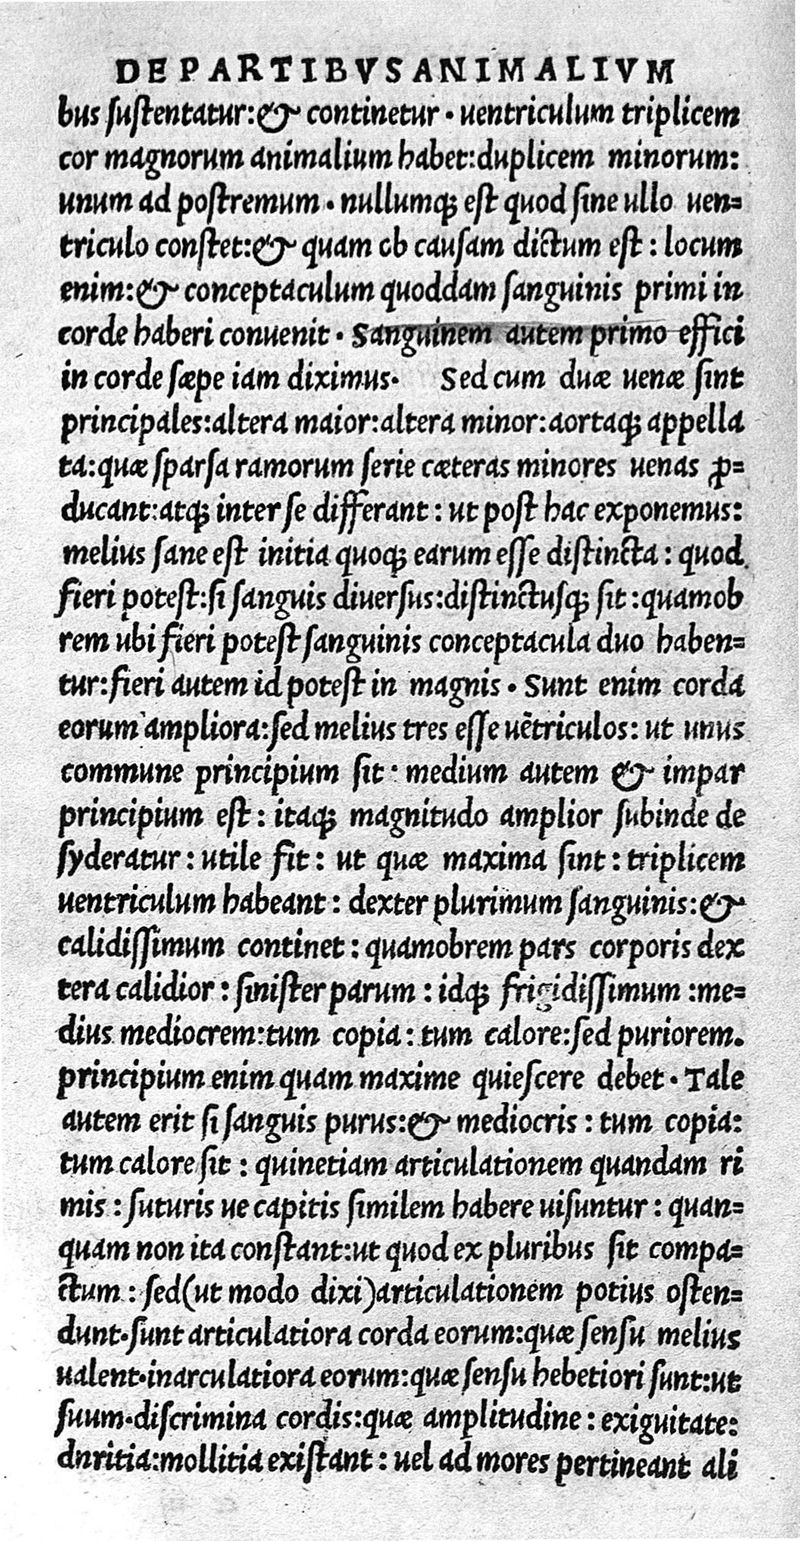 DE PARTIBVS ANIMALIVM
bus ſuſtentatur:& continetur · uentriculum triplicem
cor magnorum animalium habet:duplicem minorum:
unum ad poſtremum · nullumqꝫ eſt quod ſine ullo uen=
triculo conſtet:& quam ob cauſam dictum eſt : locum
enim:& conceptaculum quoddam ſanguinis primi in
corde haberi conuenit · Sanguinem autem primo effici
in corde ſæpe iam diximus· Sed cum duæ uenæ ſint
principales:altera maior:altera minor:aortaqꝫ appella
ta:quæ ſparſa ramorum ſerie cæteras minores uenas ꝓ=
ducant:atqꝫ inter ſe differant : ut poſt hac exponemus:
melius ſane eſt initia quoqꝫ earum eſſe diſtincta : quod
fieri poteſt:ſi ſanguis diuerſus:diſtinctuſqꝫ ſit :quamob
rem ubi fieri poteſt ſanguinis conceptacula duo haben=
tur:fieri autem id poteſt in magnis · Sunt enim corda
eorum ampliora:ſed melius tres eſſe uẽtriculos: ut unus
commune principium ſit · medium autem & impar
principium eſt : itaqꝫ magnitudo amplior ſubinde de
ſyderatur : utile fit : ut quæ maxima ſint : triplicem
uentriculum habeant : dexter plurimum ſanguinis:&
calidiſſimum continet : quamobrem pars corporis dex
tera calidior : ſiniſter parum : idqꝫ frigidiſſimum :me=
dius mediocrem:tum copia : tum calore:ſed puriorem.
principium enim quam maxime quieſcere debet · Tale
autem erit ſi ſanguis purus:& mediocris : tum copia:
tum calore ſit : quinetiam articulationem quandam ri
mis : ſuturis ue capitis ſimilem habere uiſuntur : quan=
quam non ita conſtant:ut quod ex pluribus ſit compa=
ctum : ſed(ut modo dixi)articulationem potius oſten=
dunt·ſunt articulatiora corda eorum:quæ ſenſu melius
ualent·inarculatiora eorum:quæ ſenſu hebetiori ſunt:ut
ſuum·diſcrimina cordis:quæ amplitudine : exiguitate:
dnritia:mollitia exiſtant : uel ad mores pertineant ali